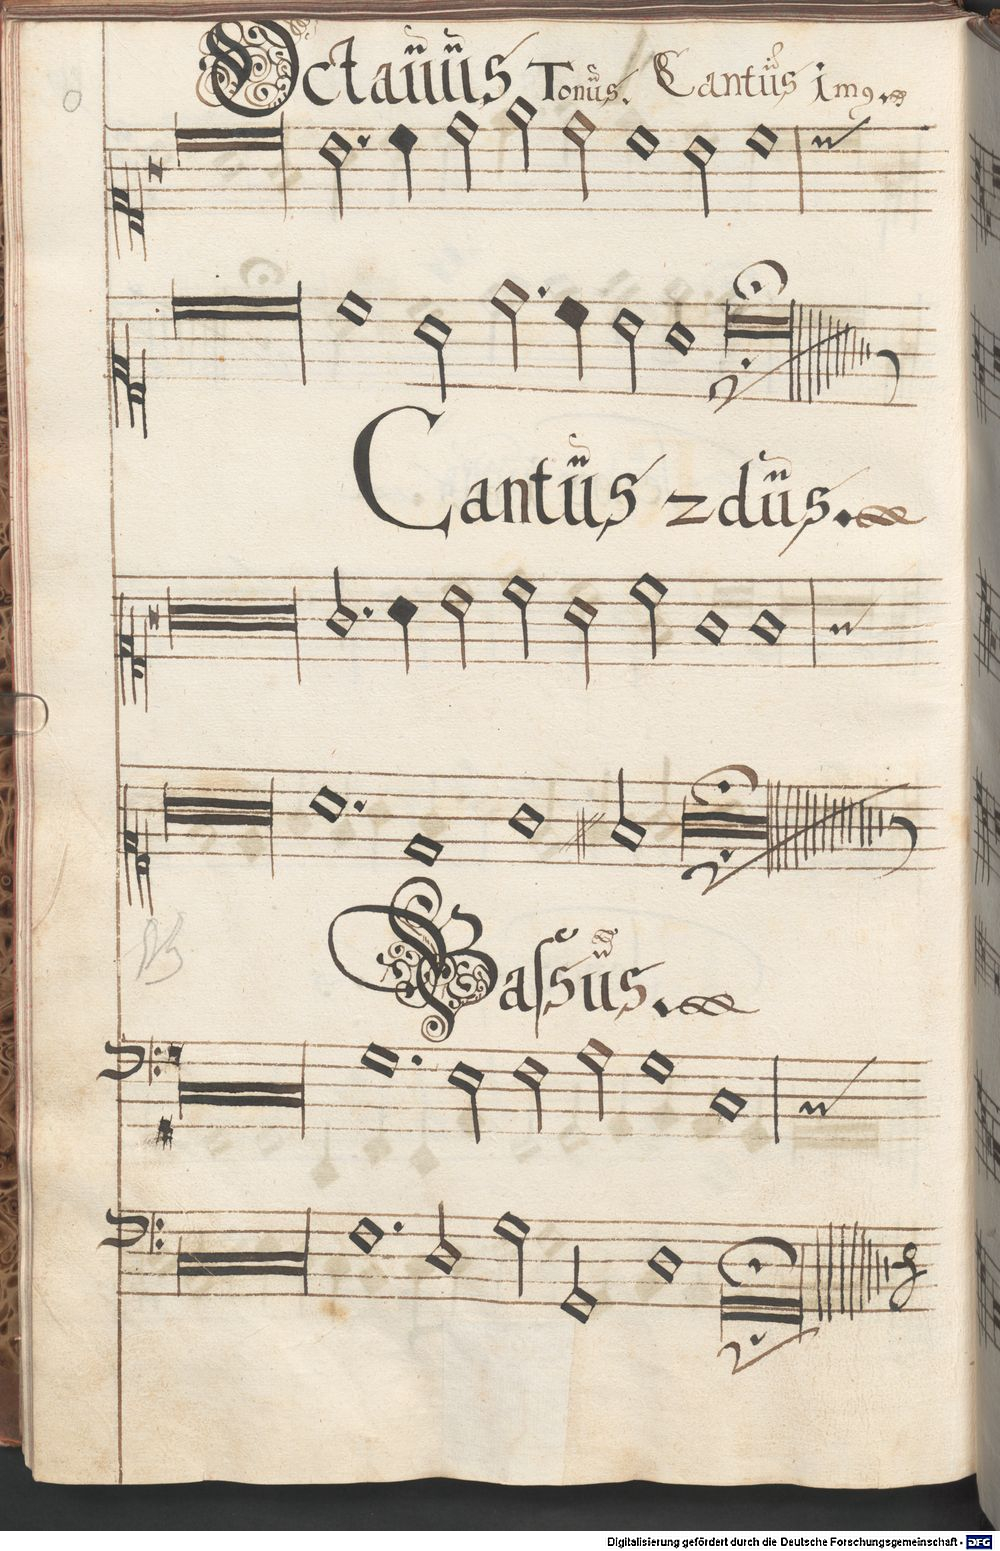 Octaũũs Tonũs. Cantũs img.
Cantũs 2dũs.
Baſsũs.
Digitalisierung gefördert durch die Deutsche Forschungsgemeinschaft - DFG